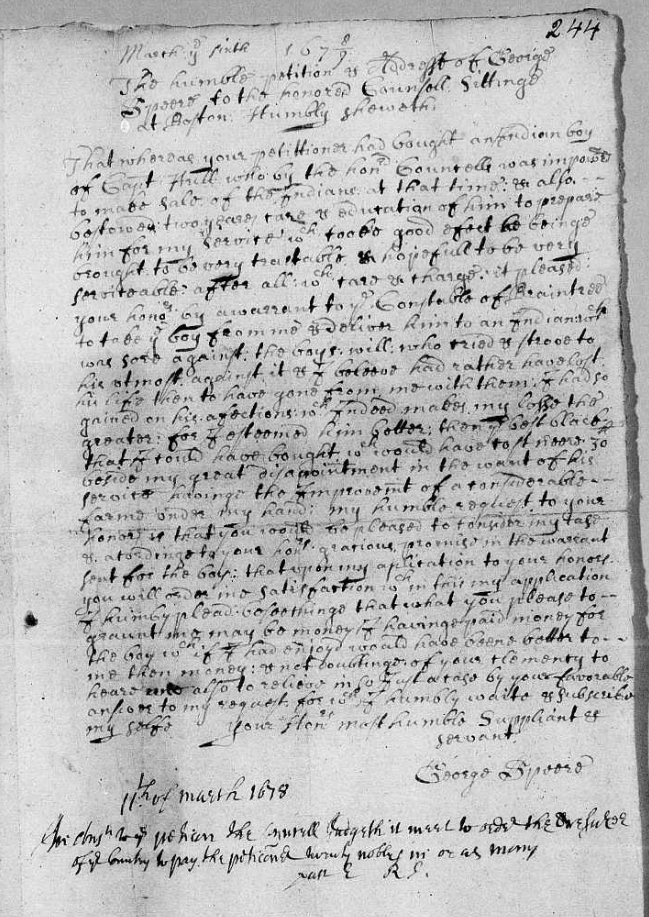 244
March ye sixth 167 8/9
The humble petition & Address of George
Speere to the honored Counsell Sittinge
At Boston: Humbly sheweth
That whereas your petitioner had bought an Indian boy
of Capt Hull who by the honrd Councell was impowrd
to make sale of the Indians at that time: & also
bestowed two yeares care & education of him to prepare
him for my service wch tooke good efect he beinge
brought to be very tractable & hopefull to be very
serviceable: after all wch care & charge: it pleased
your honors by a warrant to ye Constable of Braintree
to take ye boy from me & deliver him to an Indian wch
was sore against the boys: will: who tried & strove to
his utmost: against it & I beleeve had rather have lost
his life then to have gone from me with them: I had so
gained on his afections wch Indeed makes my losse the
greater: for I esteemed him better: then ye best black
that I could have bought wch would have cost neere 30
beside my great disapointment in the want of his
service havinge the Improvemt of a considerable
farme under my hand: my humble request to your
honors is that you would be pleased to consider my case
& acordinge to your honrs gracious promise in the warrant
sent for the boy: that upon my aplication to your honors
you will order me satisfaction wch in this my application
I humbly plead: beseethinge that what you please to
graunt me may be money I havinge paid money for
the boy wch if I had enjoyd would have beene better to
me then money: & not doubtinge of your clemency to
heare also to relieve in so just a case by your favorable
answer to my request for wch I humbly waite & subscribe
my selfe your Honrs most humble Suppliant &
servant
George Speere
11th of march 1678
In Answr to ys petition the Councell Judgeth it meet to order the Tresurer
of ye Country to pay the peticoner twenty nobles in or as mony
past E R S.